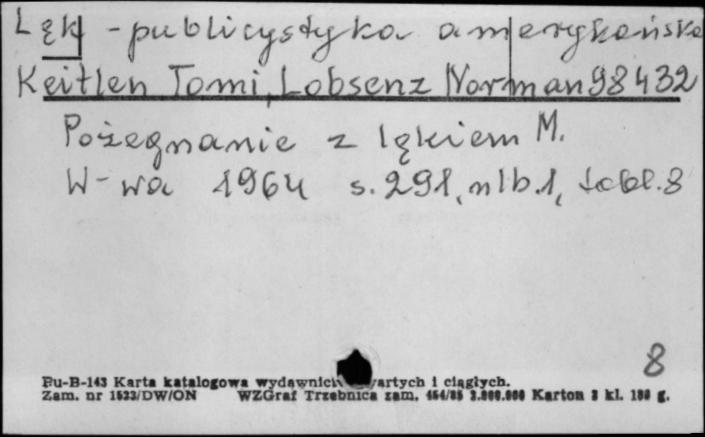 Lęk - publicystyka amerykańska
Keitlen Tomi, Lobsenz Norman 98432
Pożegnanie z lękiem M.
W-wa 1964 s. 291, nlb. 1, tabl. 8
8
Pu-B-143 Karta katalogowa wydawnictw zwartych i ciągłych.
Zam. nr 1523/DW/ON WZGraf Trzebnica zam. 454/85 2.000.000 Karton 3 kl. 180 g.